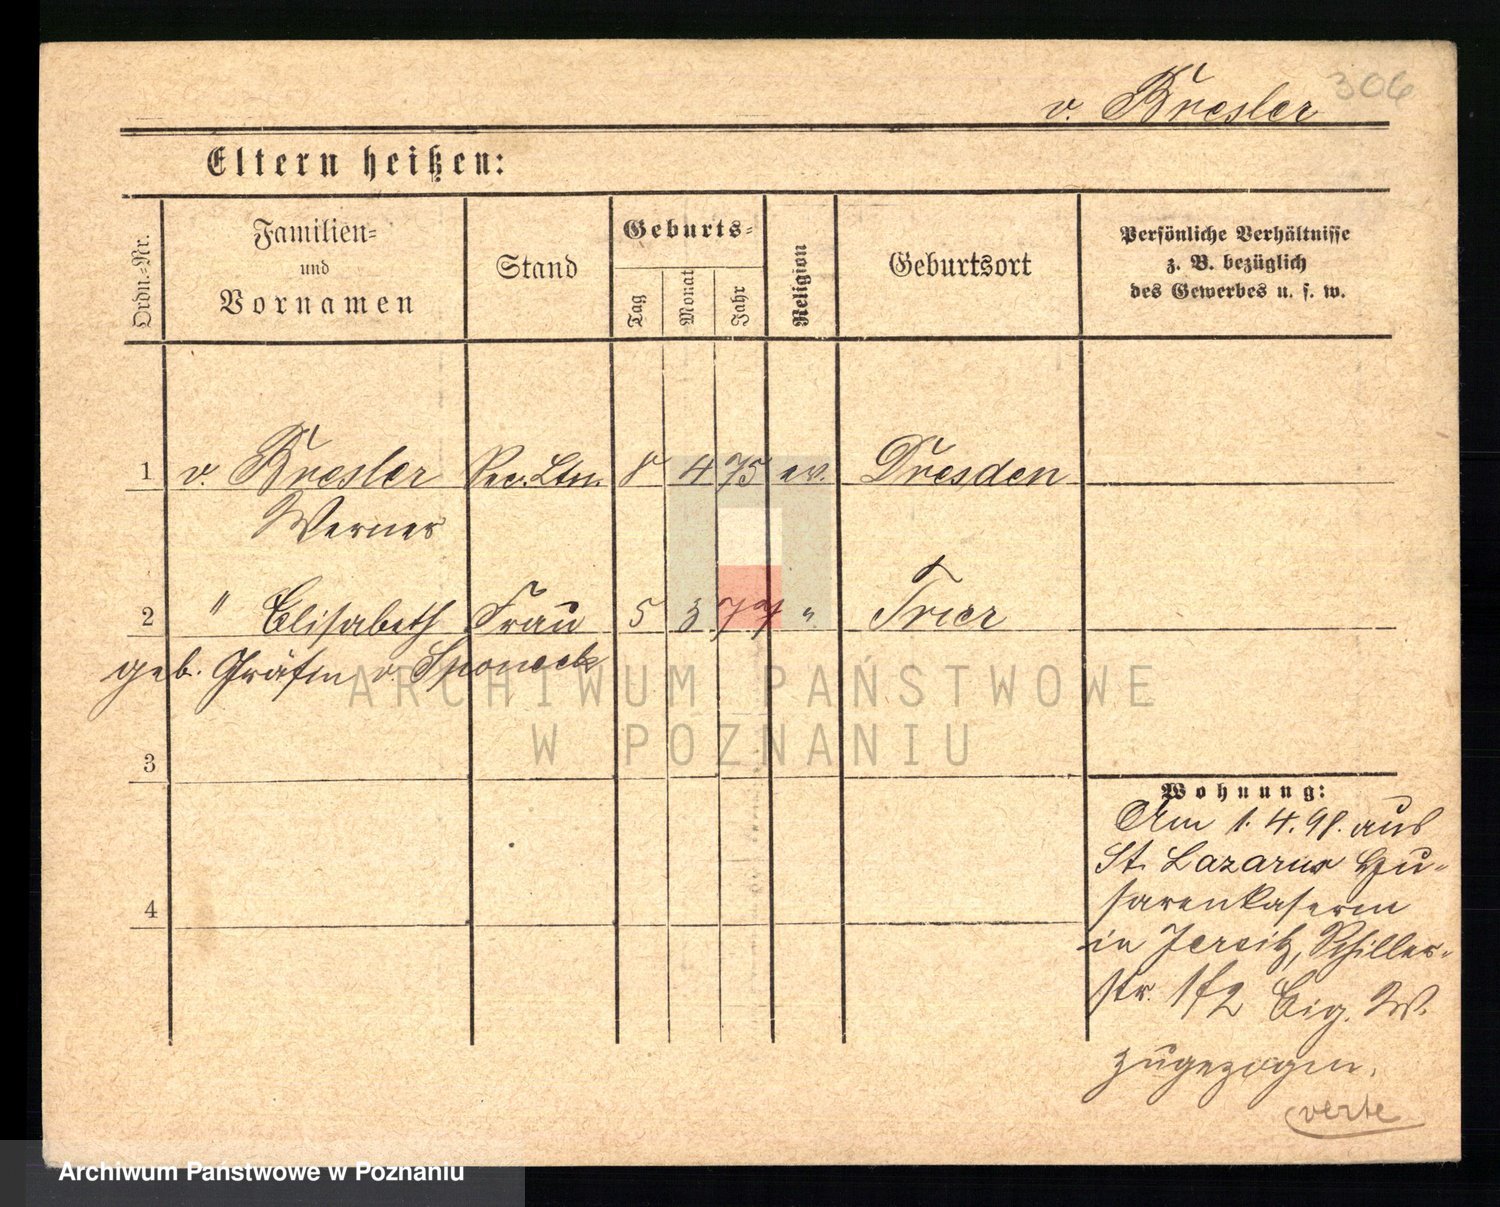 306
v. Bresler
Eltern heißen:
Ordn.-Nr.
Familien-
und
Vornamen
Stand
Geburts-
Tag
Monat
Jahr
Religion
Geburtsort
Persönliche Verhältnisse
z. B. bezüglich
des Gewerbes u. s. w.
1 v. Bresler Sec. Ltn. 8 4 75 ev. Dresden
Werner
2 " Elisabeth Frau 5 3 77 " Trier
geb. Gräfin v. Sponeck
3
4
Wohnung:
Am 1.4.98. aus
St. Lazarus Hu-
sarenkaserne
in Jersitz, Schiller-
str. Eig. W.
zugezogen.
verte
ARCHIWUM PAŃSTWOWE
W POZNANIU
Archiwum Państwowe w Poznaniu